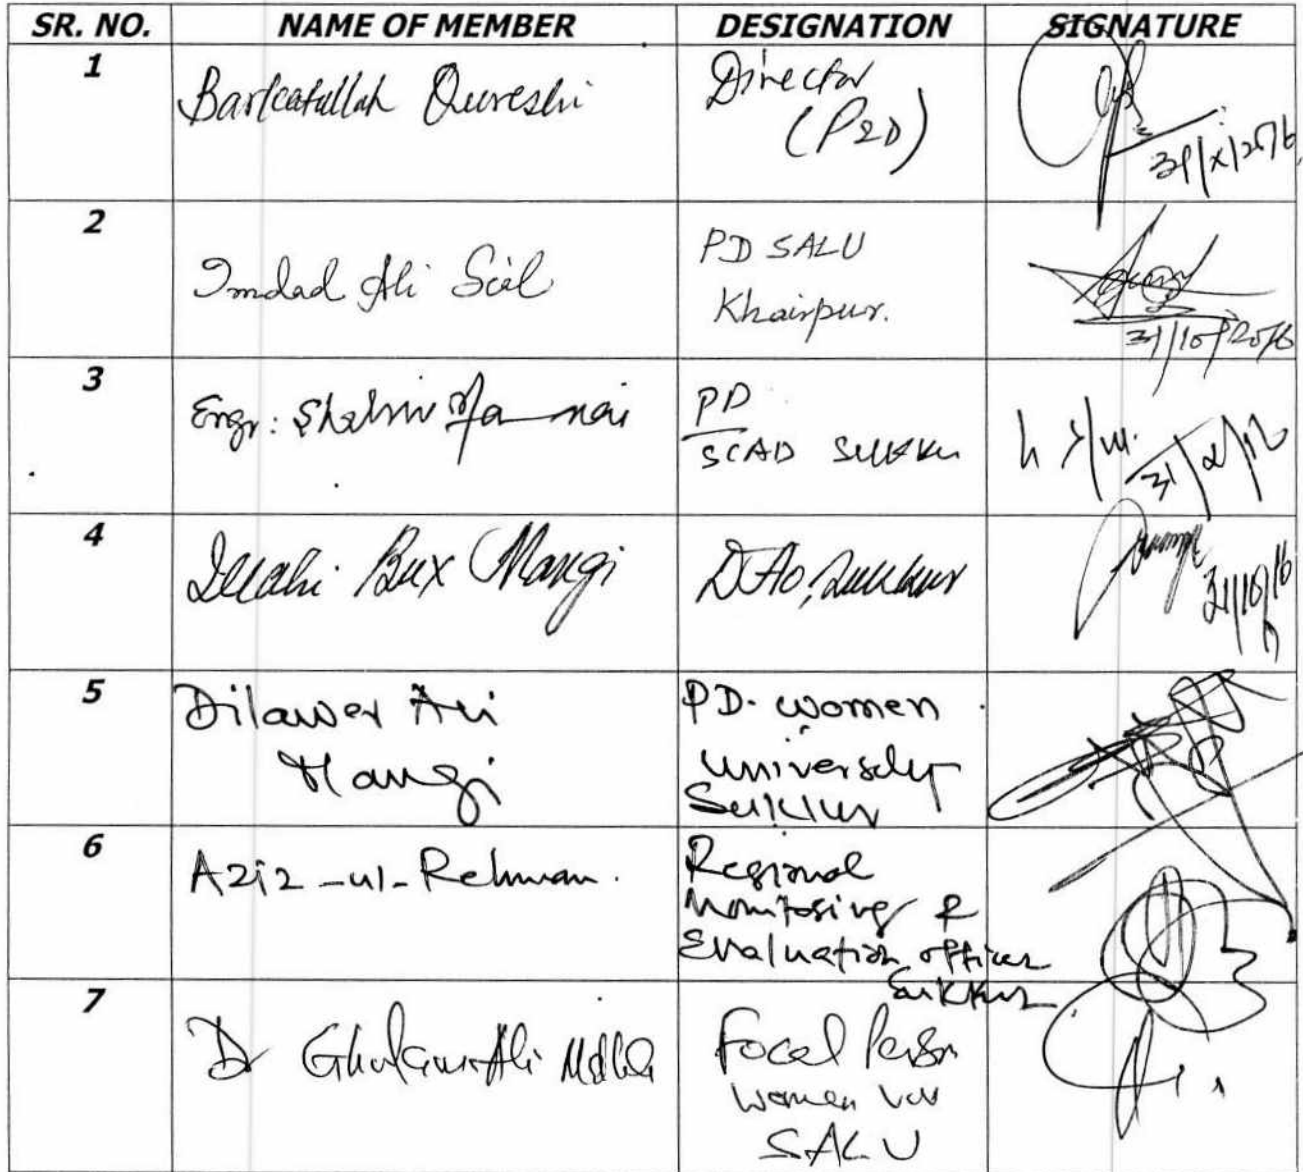 SR. NO. NAME OF MEMBER DESIGNATION SIGNATURE
1 Barkatullah Qureshi Director
(P&D)
31/X/2016
2 Imdad Ali Sial PD SALU
Khairpur.
31/10/2016
3 Engr: PD
SCAD Sukkur
31/
4 Illahi Bux Mangi DAO, Sukkur
31/10/16
5 Dilawer Ali PD. women
Mangi university
Sukkur
6 Aziz-ul-Rehman. Regional
Monitoring &
Evaluation officer
Sukkur
7 Dr Ghulam Ali Focal Person
Women
SALU